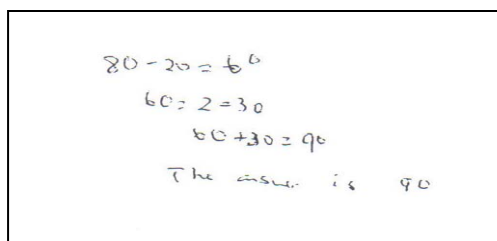 80 - 20 = 60
60 : 2 = 30
60 + 30 = 90
The answer is 90